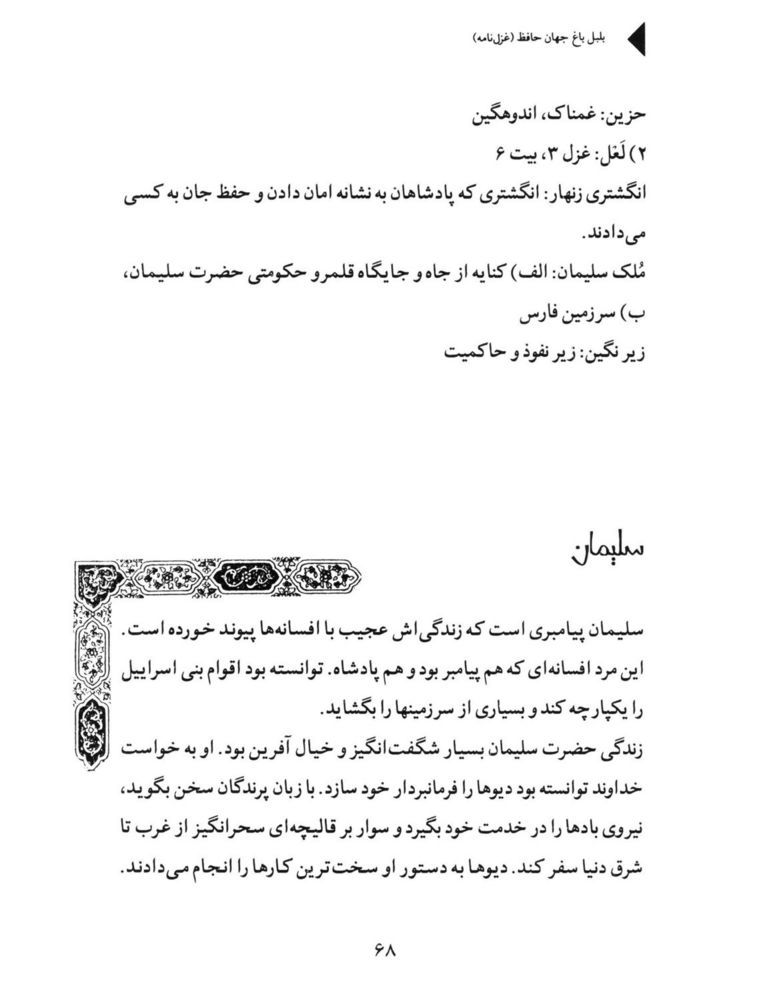 بلبل باغ جهان حافظ (غزل‌نامه)
حزین: غمناک، اندوهگین
۲) لَعْل: غزل ۳، بیت ۶
انگشتری زنهار: انگشتری که پادشاهان به نشانه امان دادن و حفظ جان به کسی
می‌دادند.
مُلک سلیمان: الف) کنایه از جاه و جایگاه قلمرو حکومتی حضرت سلیمان،
ب) سرزمین فارس
زیر نگین: زیر نفوذ و حاکمیت
سلیمان
سلیمان پیامبری است که زندگی‌اش عجیب با افسانه‌ها پیوند خورده است.
این مرد افسانه‌ای که هم پیامبر بود و هم پادشاه. توانسته بود اقوام بنی اسراییل
را یکپارچه کند و بسیاری از سرزمینها را بگشاید.
زندگی حضرت سلیمان بسیار شگفت‌انگیز و خیال آفرین بود. او به خواست
خداوند توانسته بود دیوها را فرمانبردار خود سازد. با زبان پرندگان سخن بگوید،
نیروی بادها را در خدمت خود بگیرد و سوار بر قالیچه‌ای سحرانگیز از غرب تا
شرق دنیا سفر کند. دیوها به دستور او سخت‌ترین کارها را انجام می‌دادند.
۶۸